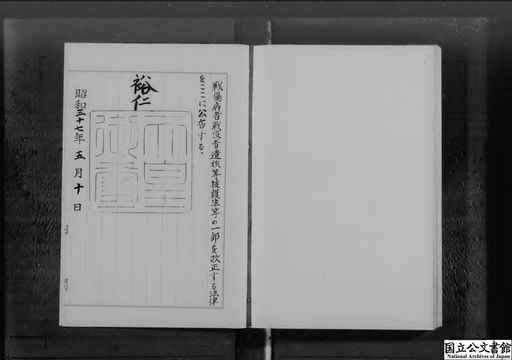 戦傷病者戦没者遺族等援護法等の一部を改正する法律
をここに公布する。
裕仁
天皇
御璽
昭和三十七年五月十日
国立公文書館
National Archives of Japan